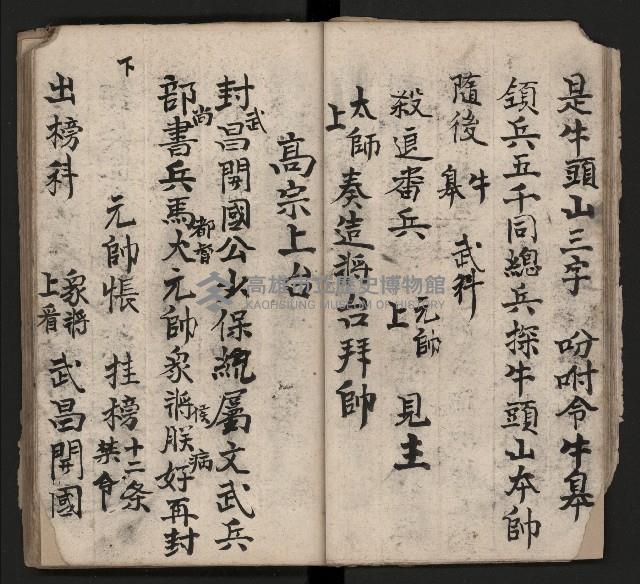 是牛頭山三字　吩咐令牛皋
領兵五千同總兵探牛頭山本帥
隨後　牛皋　武科
殺退番兵　元帥上　見主
太師上奏造將台拜帥
高宗上台
封武昌開國公少保統屬文武兵
部尚書兵馬都督大元帥眾將候朕病好再封
下
元帥帳　挂榜十二条禁令
出榜科　眾將上看　武昌開國
高雄市立歷史博物館
KAOHSIUNG MUSEUM OF HISTORY